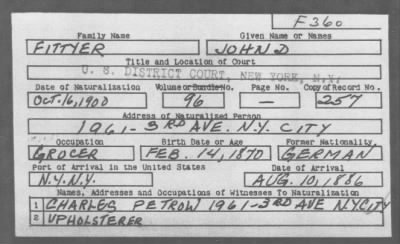 F360
Family Name Given Name or Names
FITTYER JOHN D
Title and Location of Court
U. S. DISTRICT COURT, NEW YORK, N.Y.
Date of Naturalization Volume or Bundle No. Page No. Copy of Record No.
OCT. 16, 1900 96 — 257
Address of Naturalized Person
1961-3RD AVE. N.Y. CITY
Occupation Birth Date or Age Former Nationality
GROCER FEB. 14, 1870 GERMAN
Port of Arrival in the United States Date of Arrival
N.Y. N.Y. AUG. 10, 1886
Names, Addresses and Occupations of Witnesses To Naturalization
1 CHARLES PETROW 1961-3RD AVE NYCITY
2 UPHOLSTERER